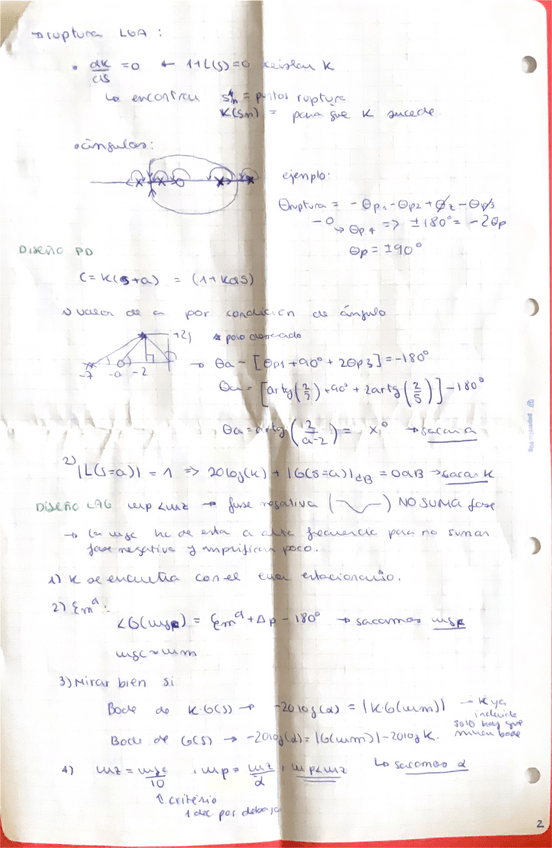 →ruptura LGA :
• dK/ds =0 ← 1+L(s)=0 K
Lo encontrar s*n = puntos ruptura
K(sn) = para que K sucede.
•ángulos:
ejemplo:
Θruptura = -Θp1-Θp2+Θz-Θp3
-0 → Θp4 => ±180°= -2Θp
Θp = ±90°
DISEÑO PD
C= K(s+a) = (1+Kds)
1) valor de a por condición de ángulo
+2j * polo
-7 -a -2
→ Θa - [Θp1 +90° + 2Θp3] =-180°
Θa = [artg(2/7)+90° + 2artg(2/5)] -180°
Θa = artg(2/a-2) = x° → sacar a
2) |L(s=a)| = 1 => 20log(K) + |G(s=a)|dB = 0dB → sacar K
DISEÑO LAG wp<wz → fase negativa ( ) NO SUMA fase
→ La wgc he de esta a alta frecuencia para no sumar
fase negativa y amplificar poco.
1) K se encuentra con el error estacionario.
2) ξmᵈ:
∠G(wgc) = ξmᵈ + Δp - 180° → sacamos wgc
wgc = wm
3) Mirar bien si
Bode de K·G(s) → -20log(α) = |K·G(wm)| → K ya
solo hay que
Bode de G(s) → -20log(α)= |G(wm)| -20logK. mirar bode
4) wz = wgc/10 , wp = wz/α , wp<wz Lo sacamos α
criterio
1 dec por debajo
2